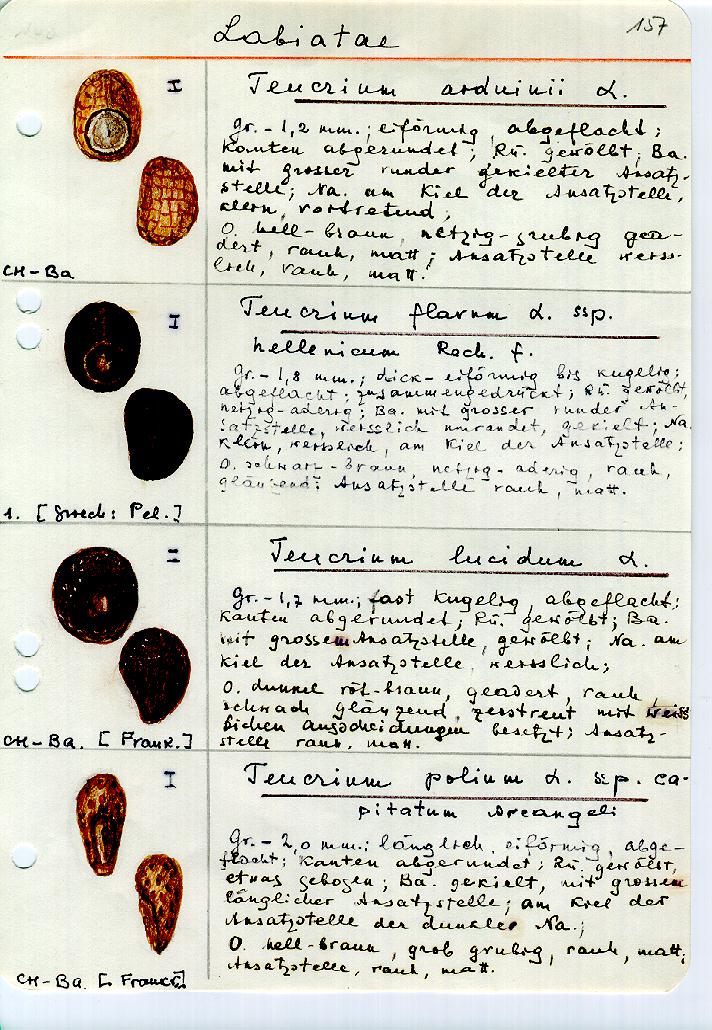 Labiatae
157
I
Teucrium arduinii L.
Gr. - 1,2 mm.; eiförmig, abgeflacht;
Kanten abgerundet; Rü. gewölbt; Ba.
mit grosser runder gekielter Ansatz-
stelle; Na. am Kiel der Ansatzstelle,
klein, vortretend;
O. hell-braun, netzig-grubig gea-
dert, rauh, matt; Ansatzstelle weiss-
lich, rauh, matt.
CH-Ba
I
Teucrium flavum L. ssp.
hellenicum Rech. f.
Gr. - 1,8 mm.; dick-eiförmig bis kugelig;
abgeflacht; zusammengedrückt; Rü. gewölbt,
netzig-aderig; Ba. mit grosser runder An-
satzstelle, weisslich umrandet, gekielt; Na.
klein, weisslich, am Kiel der Ansatzstelle;
O. schwarz-braun, netzig-aderig, rauh,
glänzend; Ansatzstelle rauh, matt.
1. [Griech: Pel.]
I
Teucrium lucidum L.
Gr. - 1,7 mm.; fast kugelig, abgeflacht;
Kanten abgerundet; Rü. gewölbt; Ba.
mit grossem Ansatzstelle, gewölbt; Na. am
Kiel der Ansatzstelle, weisslich;
O. dunkel rot-braun, geadert, rauh,
schwach glänzend, zerstreut mit weiss
lichen Ausscheidungen besetzt; Ansatz-
stelle rauh, matt.
CH-Ba. [Frank.]
I
Teucrium polium L. ssp. ca-
pitatum Arcangeli
Gr. - 2,0 mm.; länglich, eiförmig, abge-
flacht; Kanten abgerundet; Rü. gewölbt,
etwas gebogen; Ba. gekielt, mit grossem
länglicher Ansatzstelle; am Kiel der
Ansatzstelle der dunkle Na.;
O. hell-braun, grob grubig, rauh, matt;
Ansatzstelle, rauh, matt.
CH-Ba. [Frankr.]